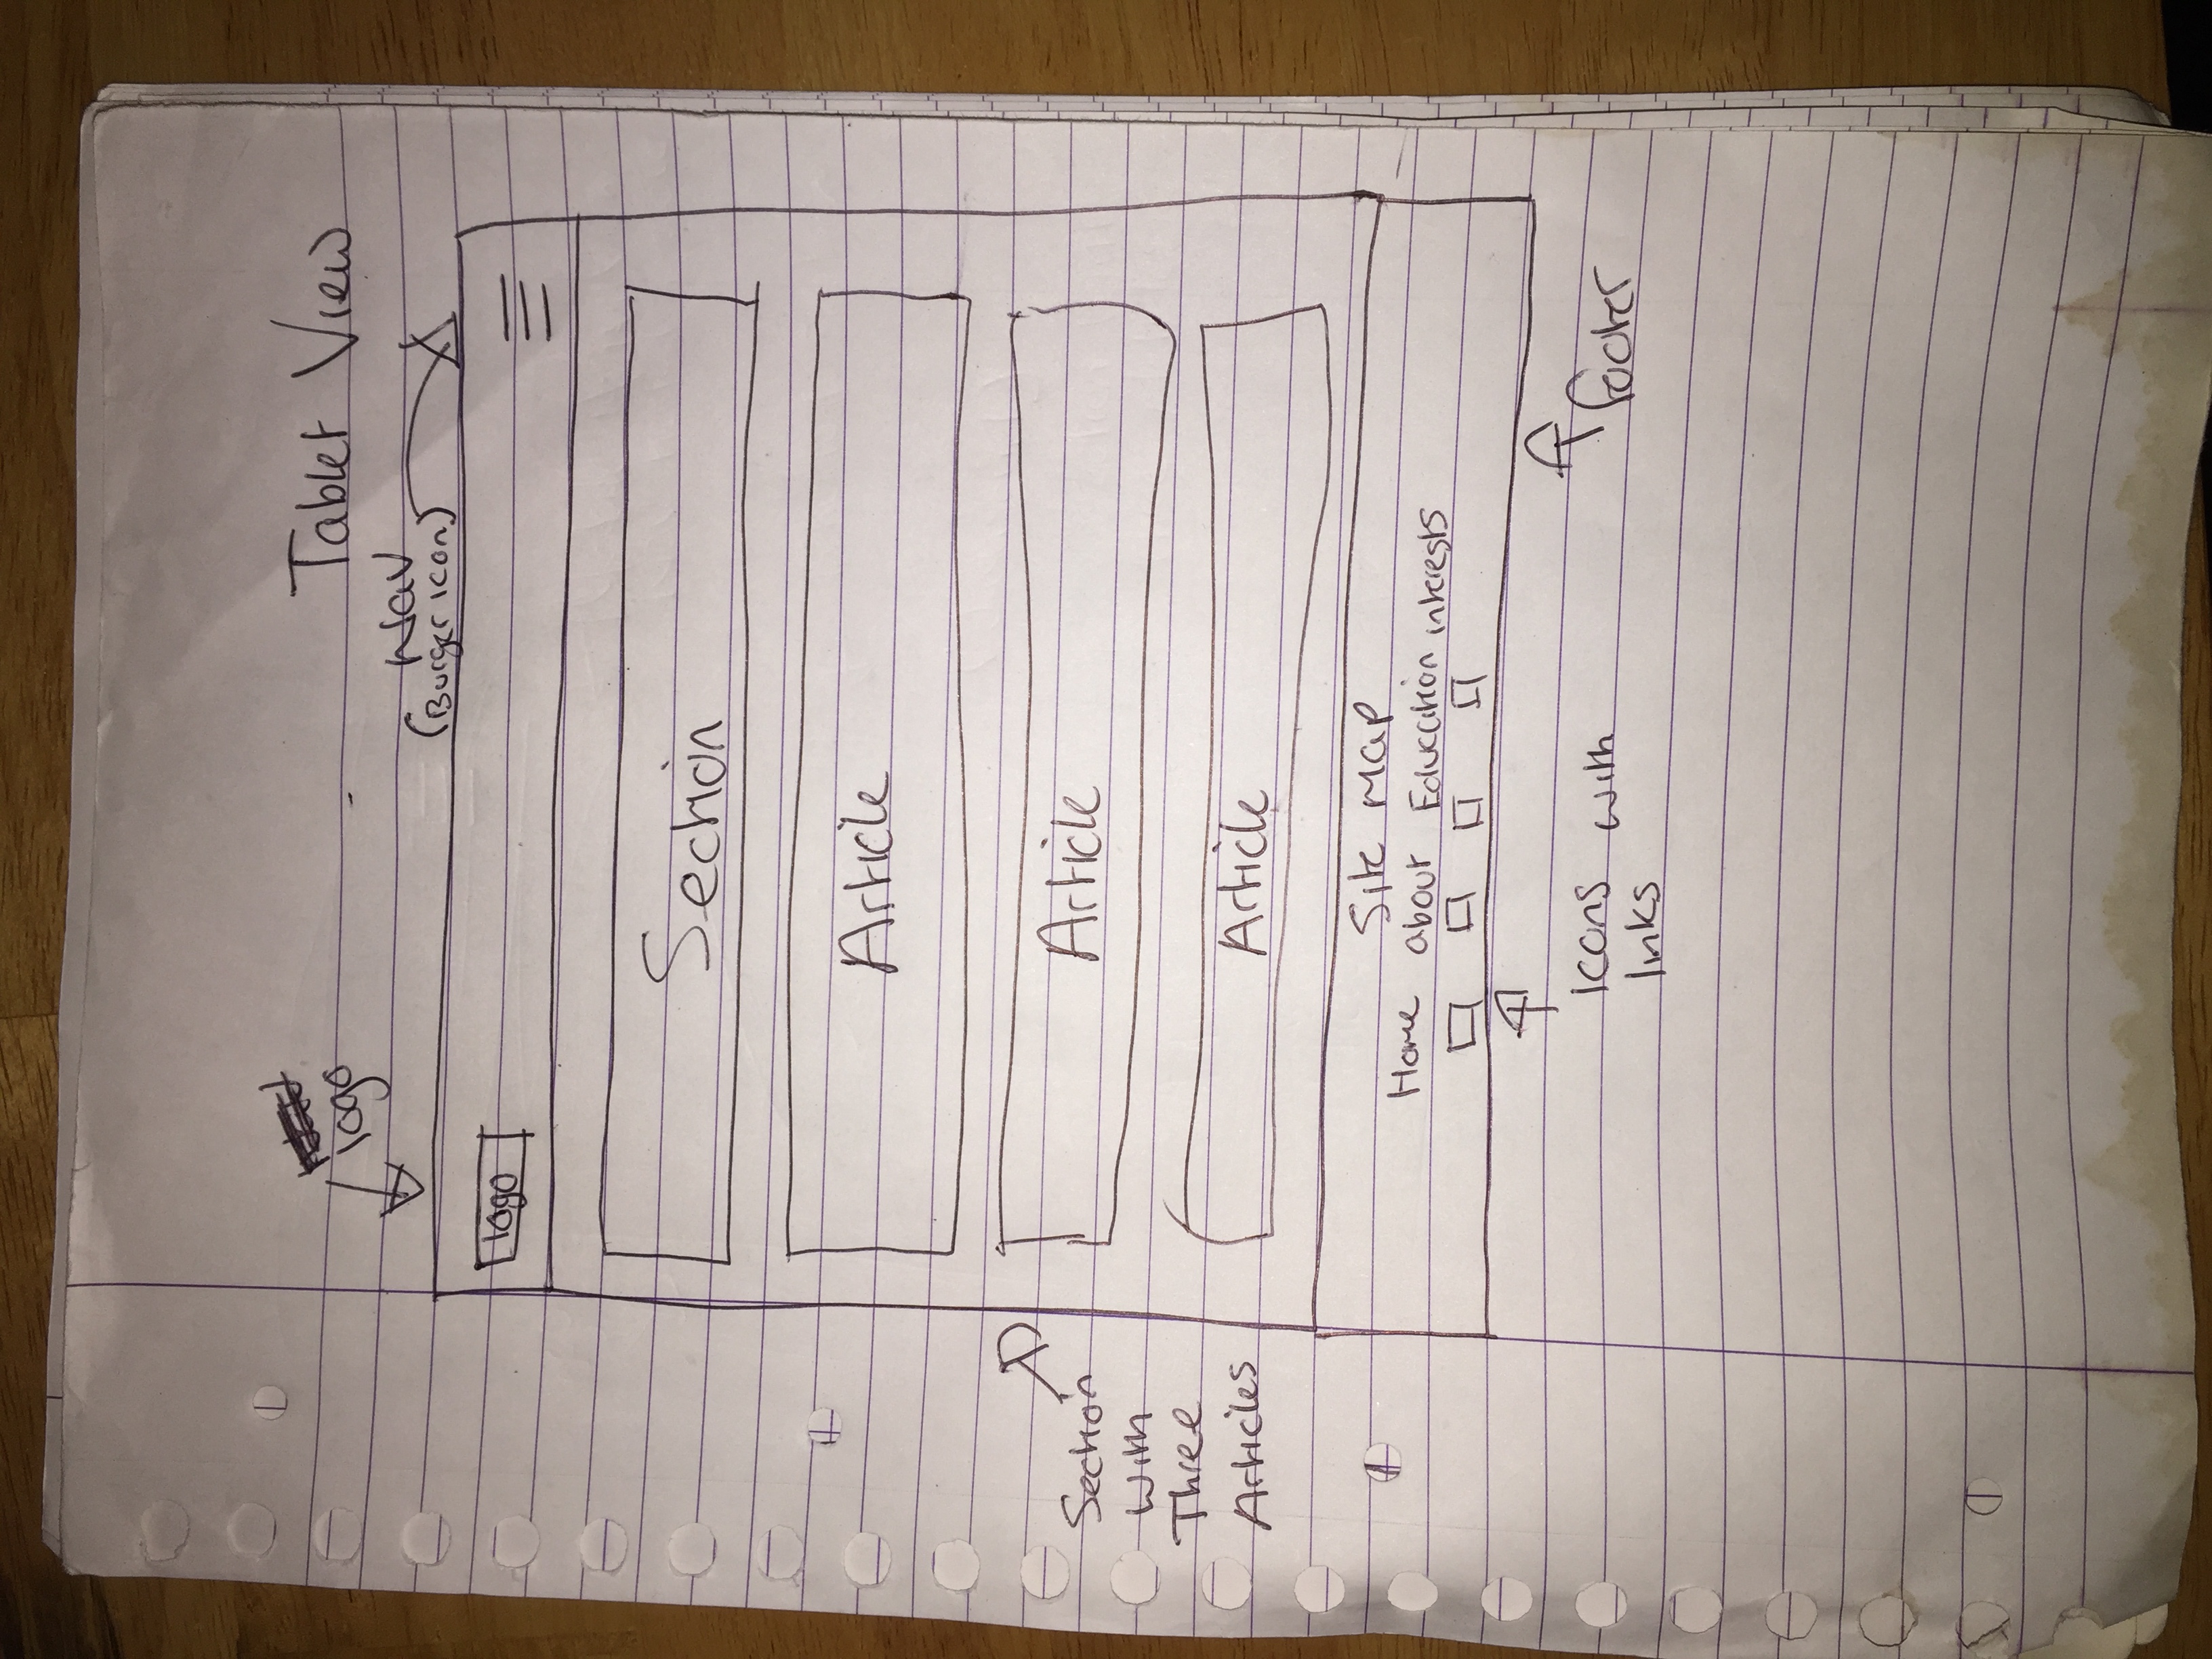 logo
Tablet View
Nav
(Burger icon)
logo
Section
Article
Article
Section
with
Three
Articles
Article
Site map
Home about Education interests
Icons with
links
footer